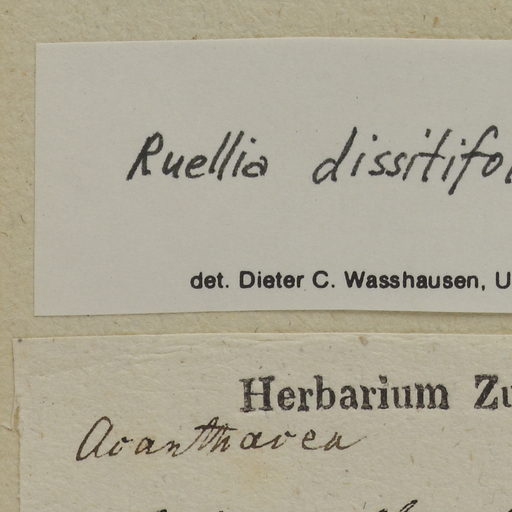 Ruellia dissitifo
det. Dieter C. Wasshausen, U
Herbarium Zu
Acanthacea